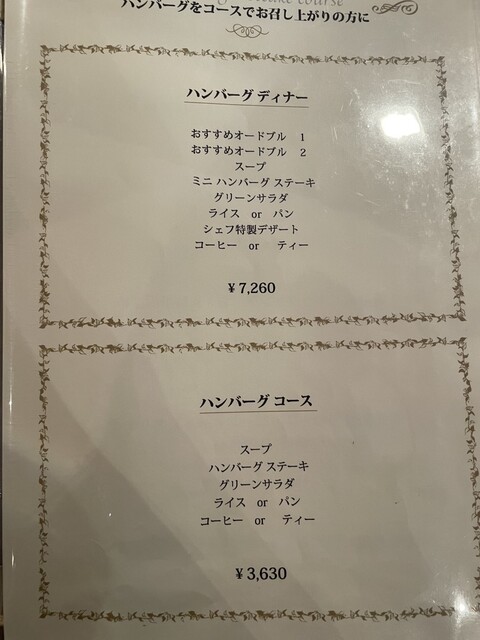 course
ハンバーグをコースでお召し上がりの方に
ハンバーグ ディナー
おすすめオードブル 1
おすすめオードブル 2
スープ
ミニ ハンバーグ ステーキ
グリーンサラダ
ライス or パン
シェフ特製デザート
コーヒー or ティー
¥7,260
ハンバーグ コース
スープ
ハンバーグ ステーキ
グリーンサラダ
ライス or パン
コーヒー or ティー
¥3,630